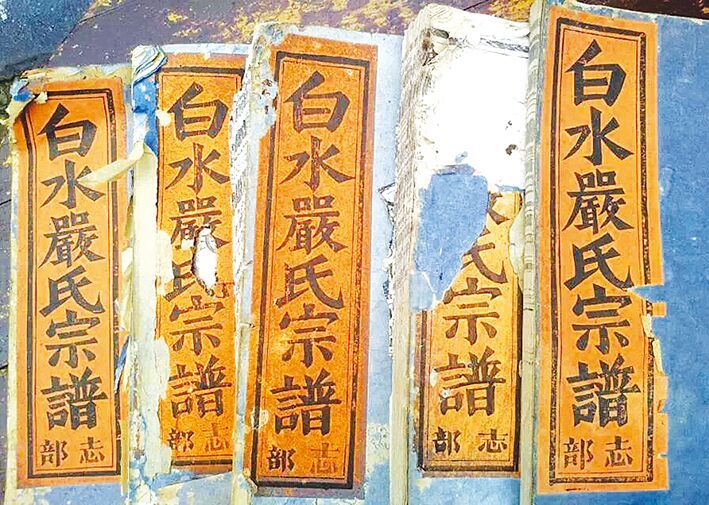 白水嚴氏宗譜
志部
氏宗譜
志部
白水嚴氏宗譜
志部
白水嚴氏宗譜
志部
白水嚴氏宗譜
志部